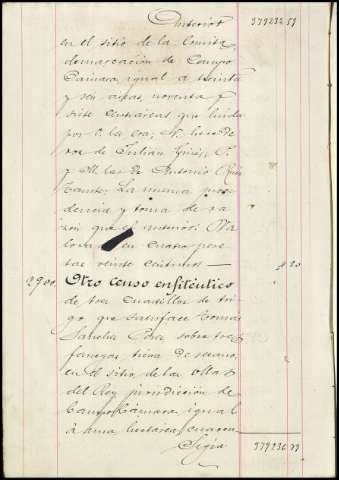 Anterior 379232 59
en el sitio de la Comita
demarcación de Campo
Cámara, igual a treinta
y seis áreas, noventa y
siete centiáreas, que linda
por O. la era, N.
de Julian
y M. las de Antonio Ruiz
La misma proce
dencia y toma de ra
zón que el anterior. Va
lorado en cuatro pese
tas veinte céntimos — 4 20
2900 Otro censo enfitéutico
de tres cuartillas de tri
go que satisface Tomás
Sancha sobre tres
fanegas tierra de secano,
en el sitio de las ollas
del Rey jurisdicción de
Campo Cámara, igual
á una hectárea, cuaren
Sigue 379236 79